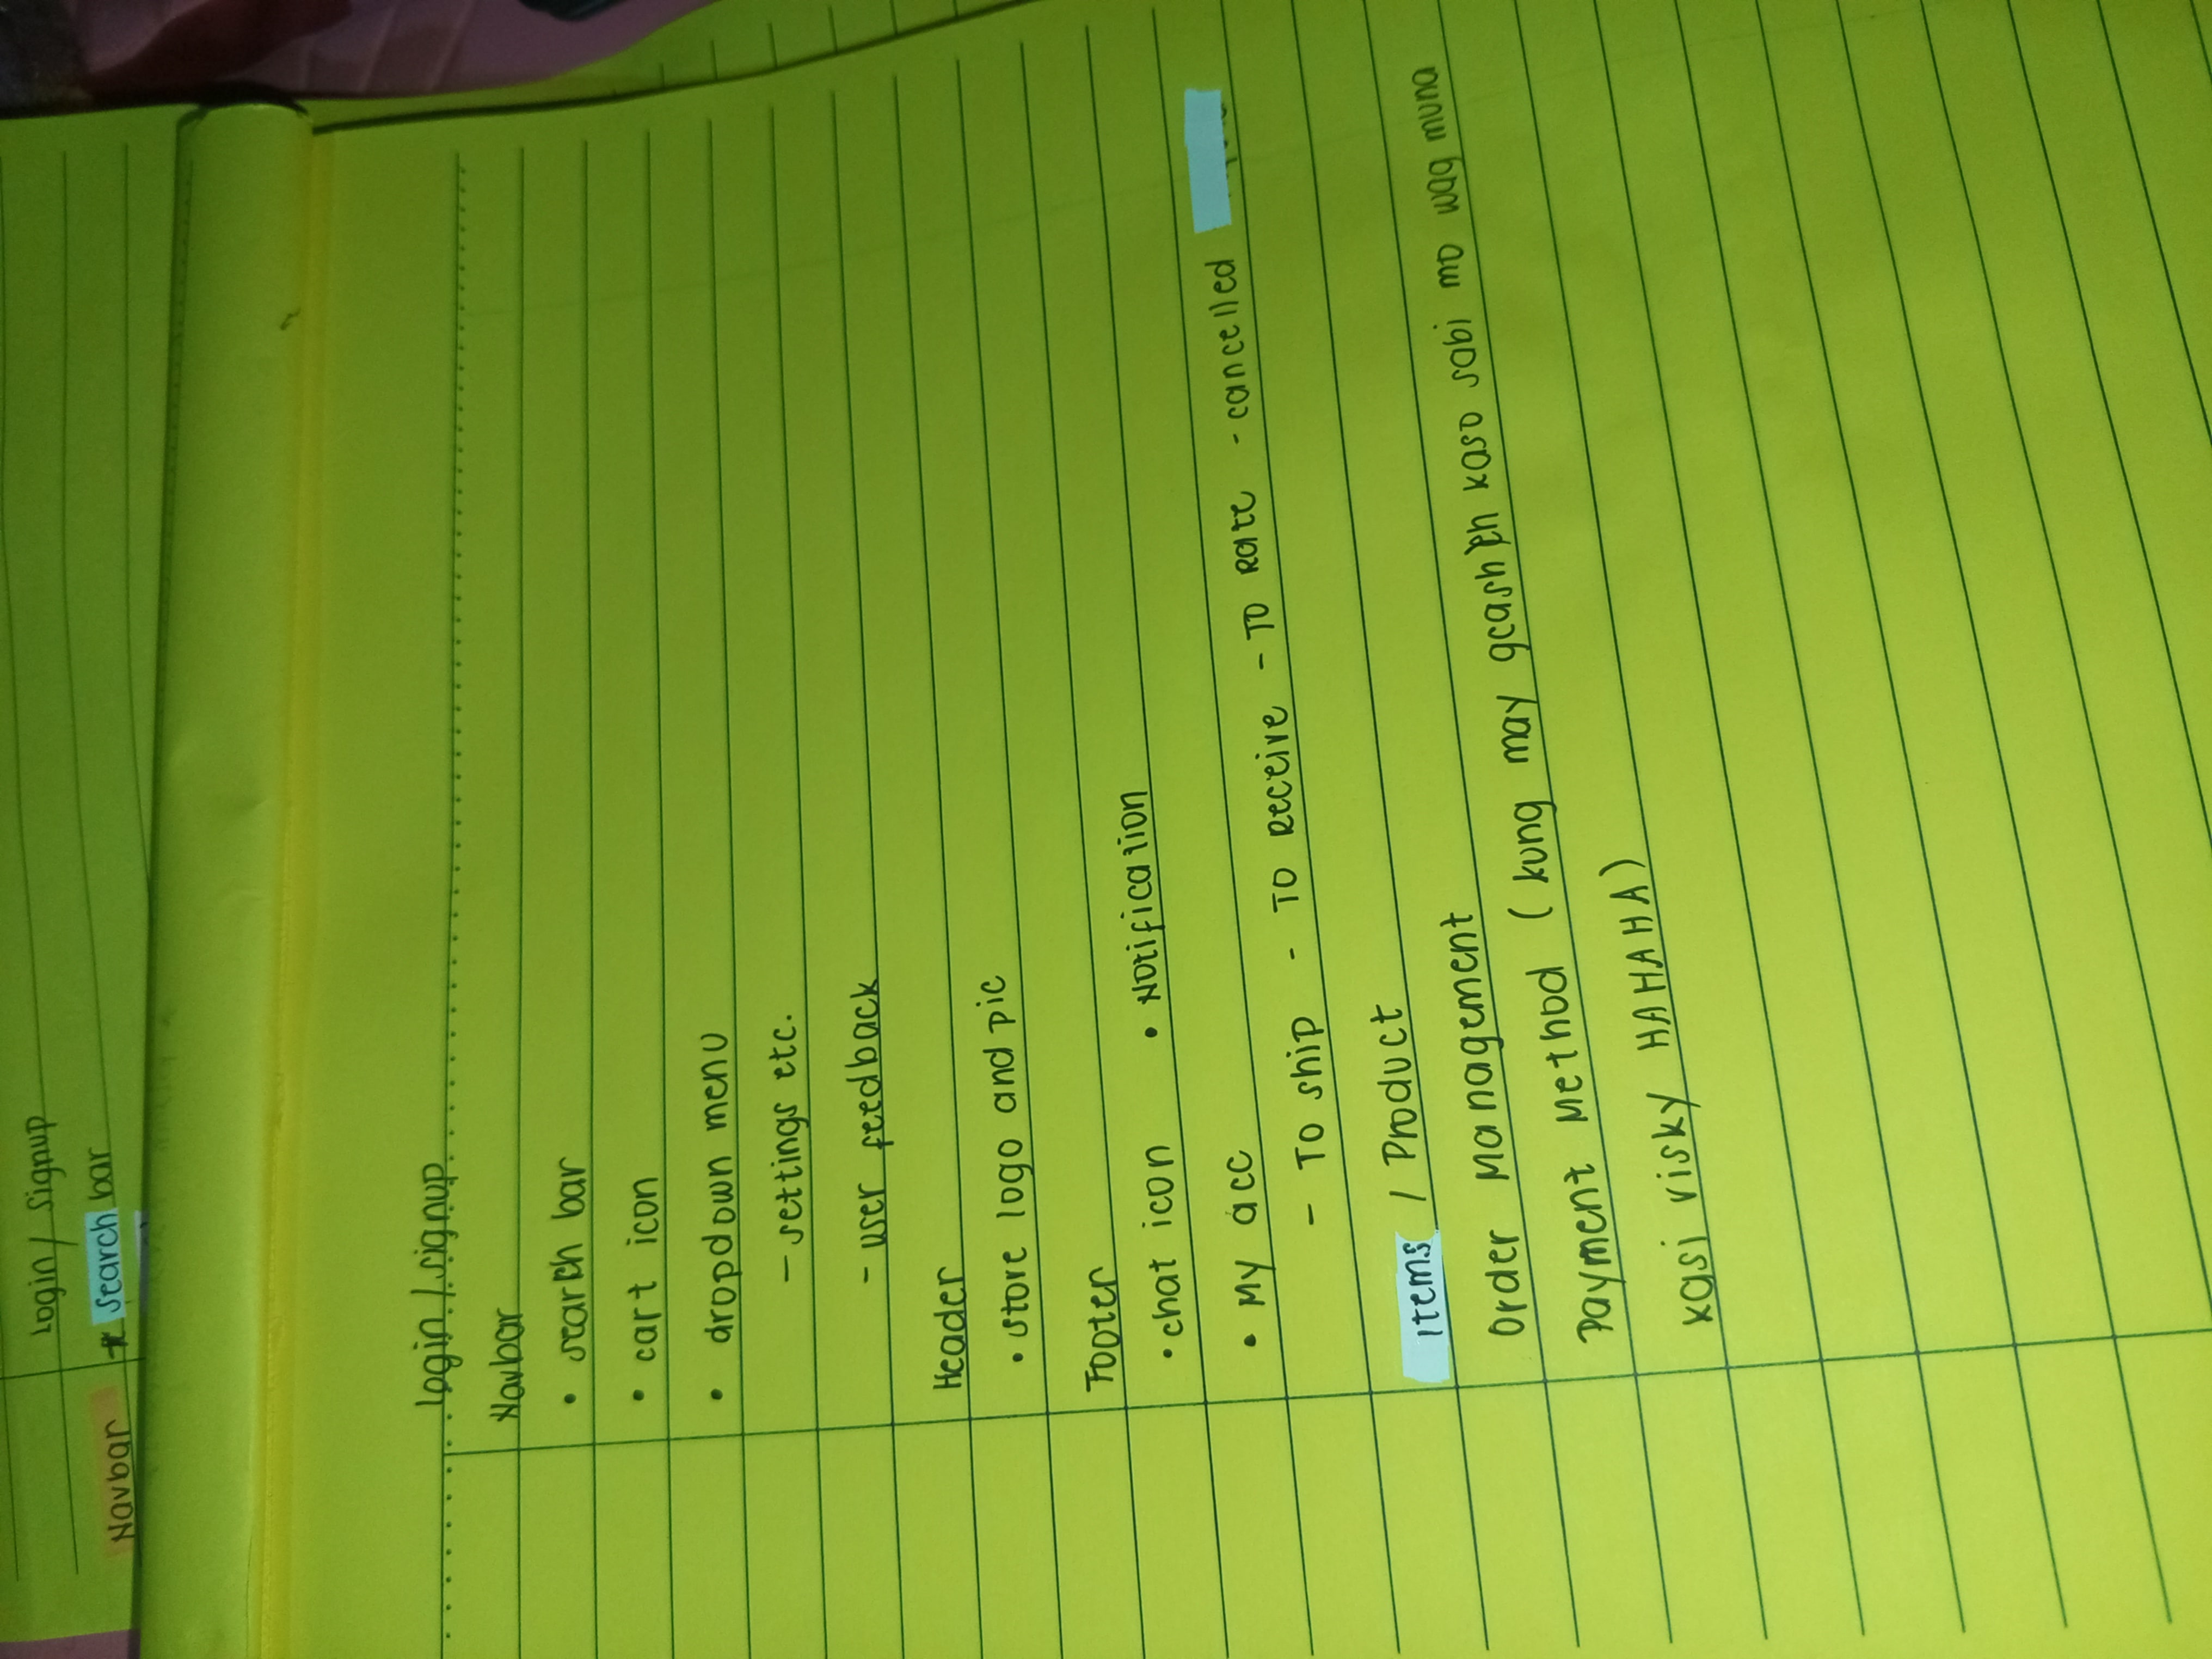 Login / Signup
Navbar * search bar
login / signup
Navbar
• search bar
• cart icon
• dropdown menu
- settings etc.
- user feedback
Header
• store logo and pic
Footer
• chat icon • Notification
• My acc
- To ship - To Receive - To Rate - cancelled
Items / Product
Order Management
Payment Method ( kung may gcash eh kaso sabi mo wag muna
kasi risky HAHAHA )